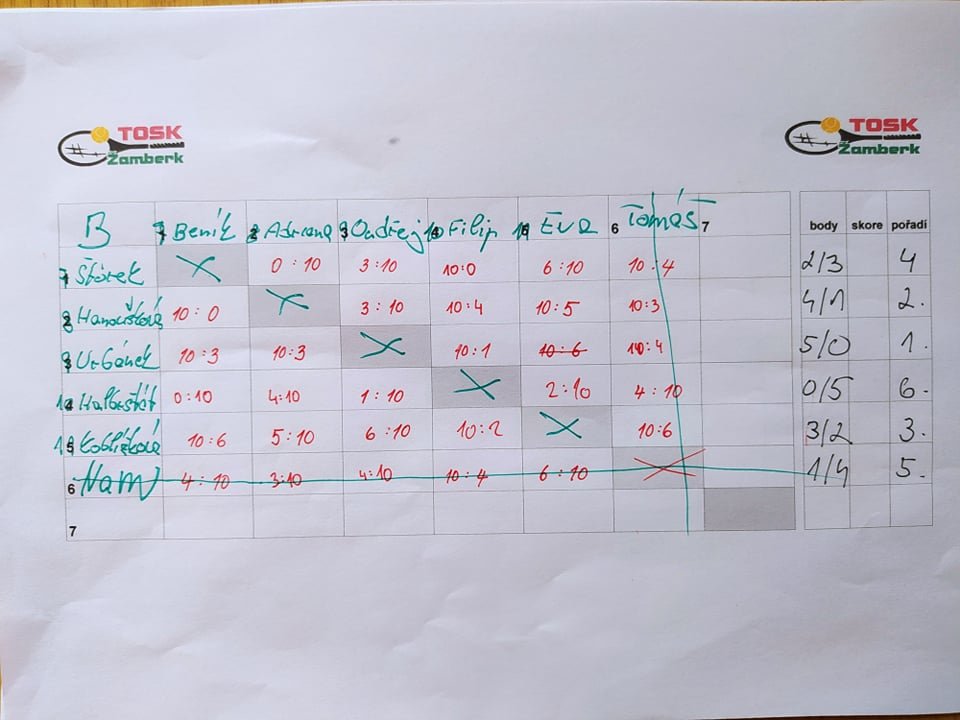 TOSK
Žamberk
TOSK
Žamberk
B Beník Adriana Ondřej Filip Eva 6 Tomáš 7 body skore pořadí
Štórek 0:10 3:10 10:0 6:10 10:4 2/3 4
10:0 3:10 10:4 10:5 10:3 4/1 2.
Urbánek 10:3 10:3 10:1 10:6 10:4 5/0 1.
0:10 4:10 1:10 2:10 4:10 0/5 6.
10:6 5:10 6:10 10:2 10:6 3/2 3.
6 4:10 3:10 4:10 10:4 6:10 1/4 5.
7